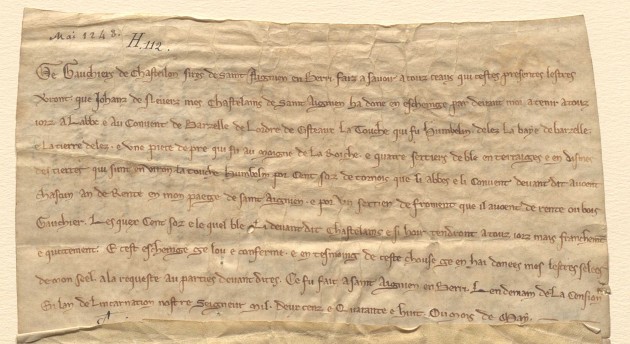 Mai 1248.
H, 112.
Ge Gauchiers de Chasteillon sires de saint Aignien en Berri. faiz a savoir a touz ceaus qui cestes presentes lestres
verront que Johanz mes Chastelains de Saint Aignien ha done en eschenge par devant moi a tenir a touz
iorz a L abbe e Au Couvent de Barzelle de Lordre de Cisteaus La Touche qui fu humbelin delez La haye de barzelle.
e La terre delez. e une piece de pre qui fu au moigne de La Roiche. e quatre sextiers de ble en terraiges e en dismes
des terres qui sunt en viron la touche humbelin por Cent solz de tornois que li abbes e li Couvent devant dit avoent
chascun an de Rente en mon paege de saint Aignien. e por un sextier de froment que il avoent de rente ou bois
Gauchier. Les quex Cent solz e le quel ble Li devant dit chastelains e si hoir tendront a touz iorz mais franchement
e quitement. E cest eschenge ge lou e conferme. e en tesmoing de ceste chouse ge en hai donees mes lestres seelees
de mon seel a la requeste au parties devant dites. Ce fu fait a saint Aignien en Berri. Lendemain de La
En lan de Lincarnation nostre Seigneur mil. deus cenz e Quarante e huit. Ou mois de May.